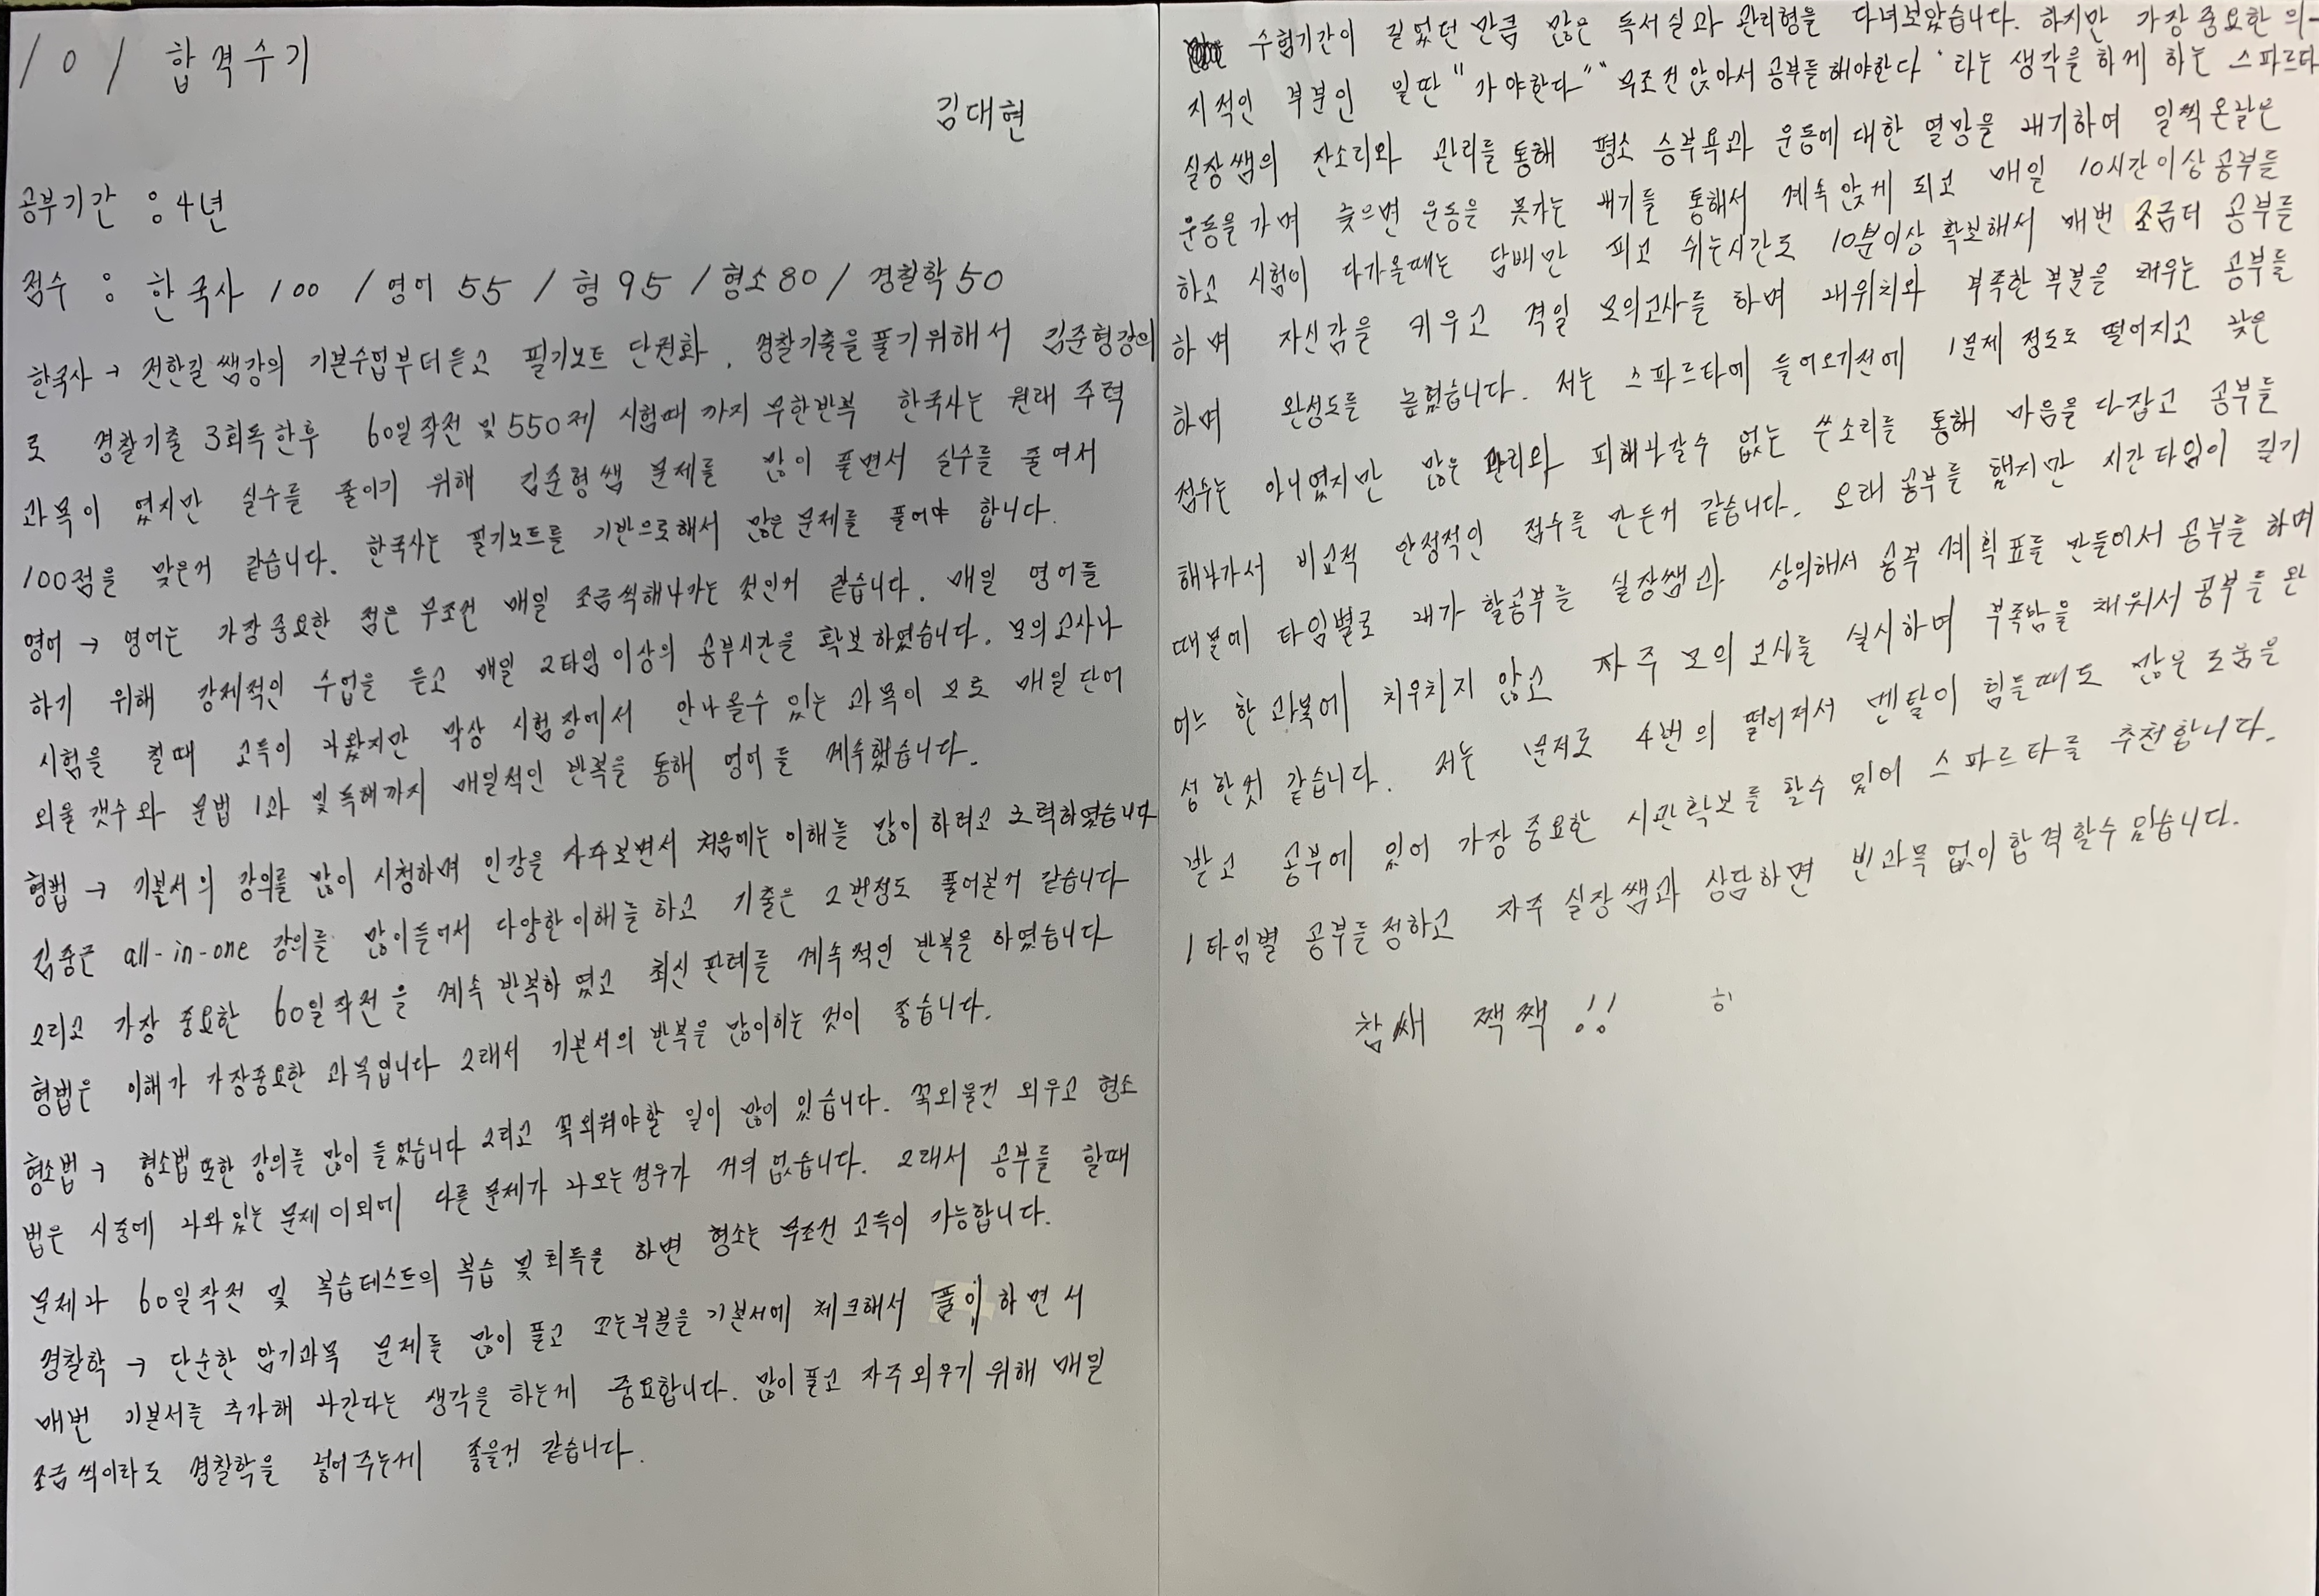 101 합격수기
김대현
공부기간 : 4년
점수 : 한국사 100 / 영어 55 / 형 95 / 형소 80 / 경찰학 50
한국사 → 전한길쌤강의 기본수업부터듣고 필기노트 단권화, 경찰기출을풀기위해서 김준형강의
로 경찰기출 3회독한후 60일작전 및 550제 시험때 까지 무한반복 한국사는 원래 주력
과목이 였지만 실수를 줄이기 위해 김준형쌤 문제를 많이 풀면서 실수를 줄여서
100점을 맞은거 같습니다. 한국사는 필기노트를 기반으로해서 많은문제를 풀어야 합니다.
영어 → 영어는 가장중요한 점은 무조건 매일 조금씩해나가는 것인거 같습니다. 매일 영어를
하기 위해 강제적인 수업을 듣고 매일 2타임이상의 공부시간을 확보하였습니다. 모의고사나
시험을 칠때 고득이 나왔지만 막상 시험장에서 안나올수 있는 과목이 므로 매일단어
외울갯수와 문법 1과 및독해까지 매일적인 반복을 통해 영어를 계속했습니다.
형법 → 기본서의 강의를 많이 시청하며 인강을 자주보면서 처음에는이해를 많이 하려고 노력하였습니다
김중근 all-in-one 강의를 많이들어서 다양한이해를하고 기출은 2번정도 풀어본거 같습니다
그리고 가장 중요한 60일작전을 계속반복하였고 최신판례를 계속적인 반복을 하였습니다
형법은 이해가 가장중요한 과목입니다 그래서 기본서의 반복을 많이하는 것이 좋습니다.
형소법 → 형소법또한 강의를 많이들었습니다 그리고 꼭외워야할 일이 많이 있습니다. 꼭외울건 외우고 형소
법은 시중에 나와있는 문제이외에 다른문제가 나오는경우가 거의없습니다. 그래서 공부를 할때
문제과 60일작전 및 복습테스트의 복습및회독을 하면 형소는 무조건 고득이 가능합니다.
경찰학 → 단순한 암기과목 문제를 많이풀고 모는부분을기본서에 체크해서 풀이하면서
매번 기본서를 추가해 나간다는 생각을 하는게 중요합니다. 많이풀고 자주외우기 위해 매일
조금씩이라도 경찰학을 넣어주는게 좋을거 같습니다.
수험기간이 길었던만큼 많은 독서실과 관리형을 다녀보았습니다. 하지만 가장중요한 의-
지적인 부분인 일단 "가야한다" "무조건앉아서 공부를해야한다 '라는 생각을하게 하는 스파르타
실장쌤의 잔소리와 관리를통해 평소 승부욕과 운동에대한 열망을 내기하여 일찍온날은
운동을가며 늦으면 운동을 못가는 내기를 통해서 계속앉게 되고 매일 10시간이상공부를
하고 시험이 다가올때는 담배만 피고 쉬는시간도 10분이상확보해서 매번 조금더 공부를
하며 자신감을 키우고 격일 모의고사를 하며 내위치와 부족한부분을 채우는 공부를
하며 완성도를 높혔습니다. 저는 스파르타에 들어오기전에 1문제 정도도 떨어지고 낮은
점수는 아니였지만 많은 관리와 피해나갈수 없는 쓴소리를 통해 마음을다잡고 공부를
해나가서 비교적 안정적인 점수를 만든거 같습니다. 오래공부를 했지만 시간타임이 길기
때문에 타임별로 내가 할공부를 실장쌤과 상의해서 공부계획표를 만들어서 공부를하며
어느 한과목에 치우치지 않고 자주모의고사를 실시하며 부족함을 채워서공부를 완
성한것 같습니다. 저는 1문제로 4번의 떨어져서 멘탈이 힘들때도 많은도움을
받고 공부에 있어 가장중요한 시간확보를 할수 있어 스파르타를 추천합니다.
1타임별 공부를정하고 자주실장쌤과 상담하면 빈과목없이합격할수 있습니다.
참새 짹짹!!